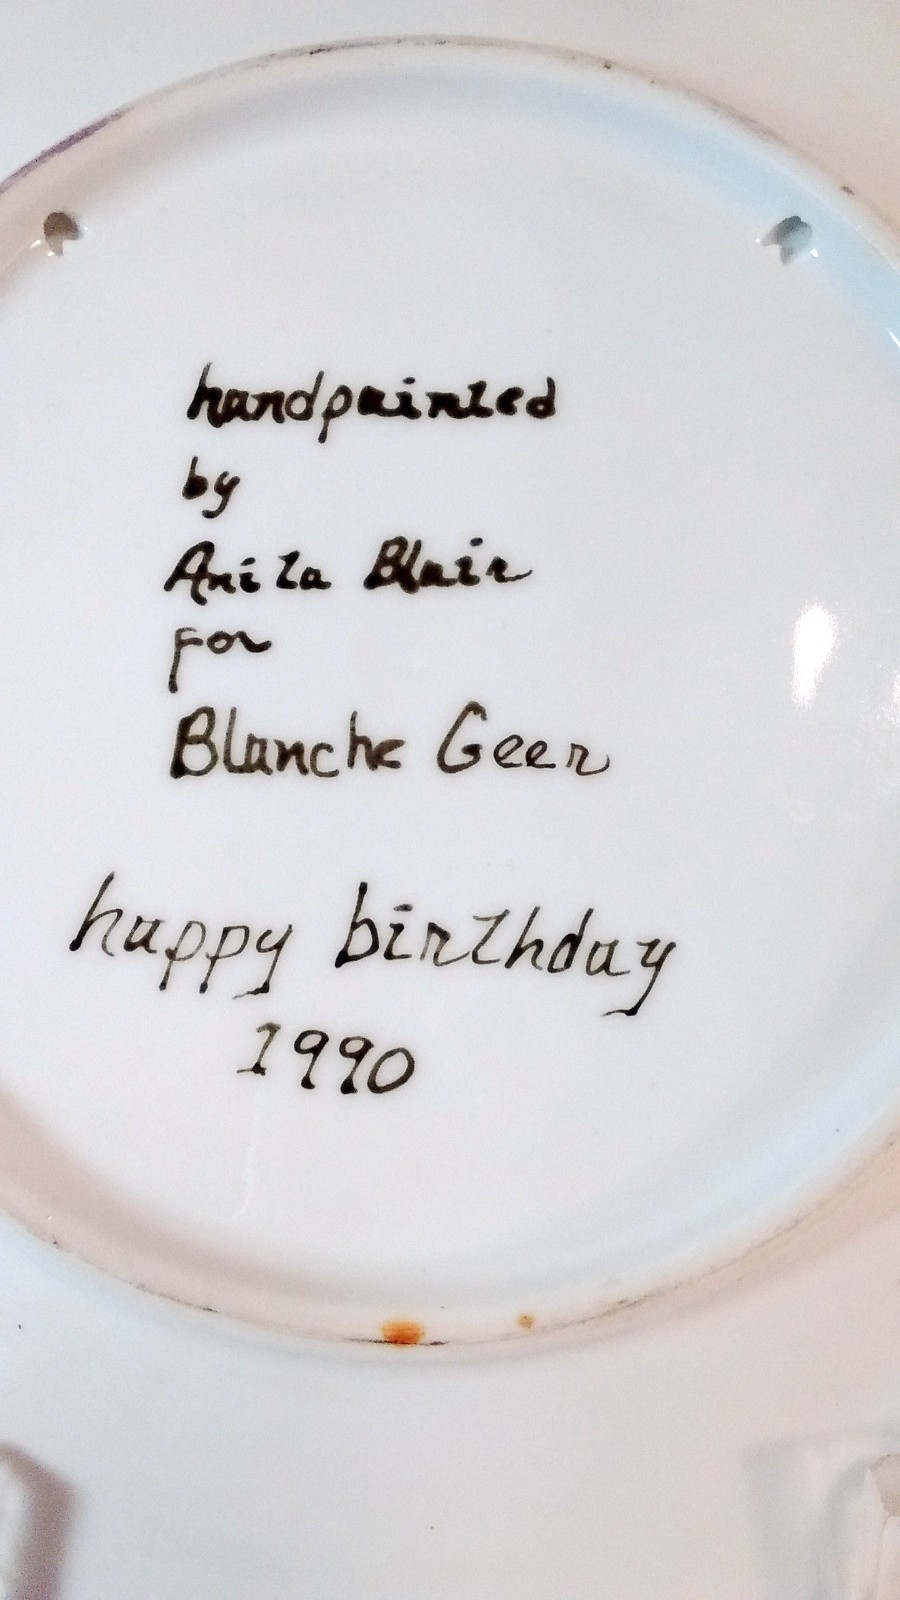 handpainted
by
Anita Blair
for
Blanche Geer
happy birthday
1990